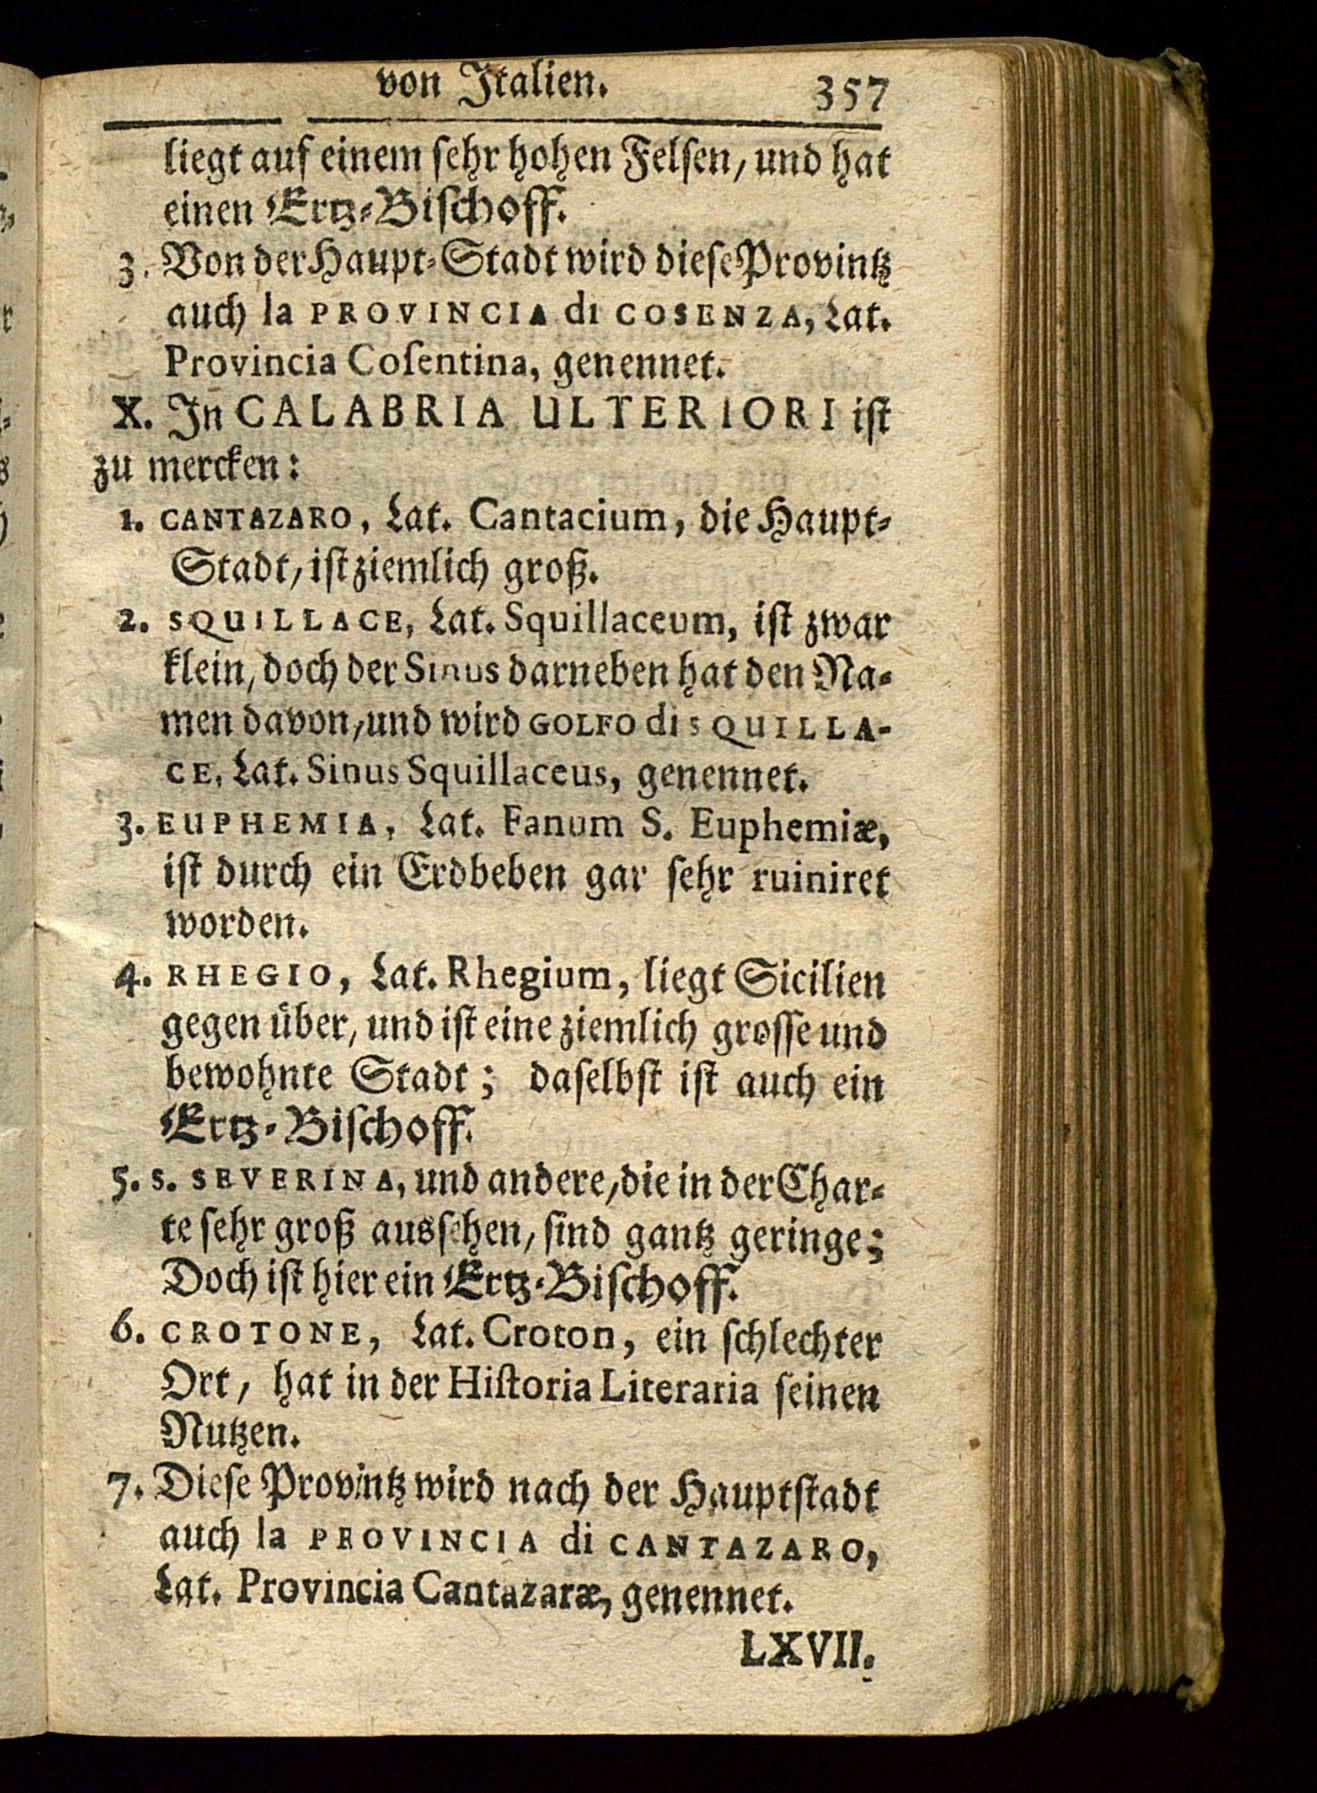 von Italien. 357
liegt auf einem sehr hohen Felsen, und hat
einen Ertz-Bischoff.
3. Von der Haupt-Stadt wird diese Provintz
auch la PROVINCIA di COSENZA, Lat.
Provincia Cosentina, genennet.
X. In CALABRIA ULTERIORI ist
zu mercken:
1. CANTAZARO, Lat. Cantacium, die Haupt-
Stadt, ist ziemlich groß.
2. SQUILLACE, Lat. Squillaceum, ist zwar
klein, doch der Sinus darneben hat den Na-
men davon, und wird GOLFO di SQUILLA-
CE, Lat. Sinus Squillaceus, genennet.
3. EUPHEMIA, Lat. Fanum S. Euphemiæ,
ist durch ein Erdbeben gar sehr ruiniret
worden.
4. RHEGIO, Lat. Rhegium, liegt Sicilien
gegen über, und ist eine ziemlich grosse und
bewohnte Stadt; daselbst ist auch ein
Ertz-Bischoff.
5. S. SEVERINA, und andere, die in der Char-
te sehr groß aussehen, sind gantz geringe;
Doch ist hier ein Ertz-Bischoff.
6. CROTONE, Lat. Croton, ein schlechter
Ort, hat in der Historia Literaria seinen
Nutzen.
7. Diese Provintz wird nach der Hauptstadt
auch la PROVINCIA di CANTAZARO,
Lat. Provincia Cantazaræ, genennet.
LXVII.